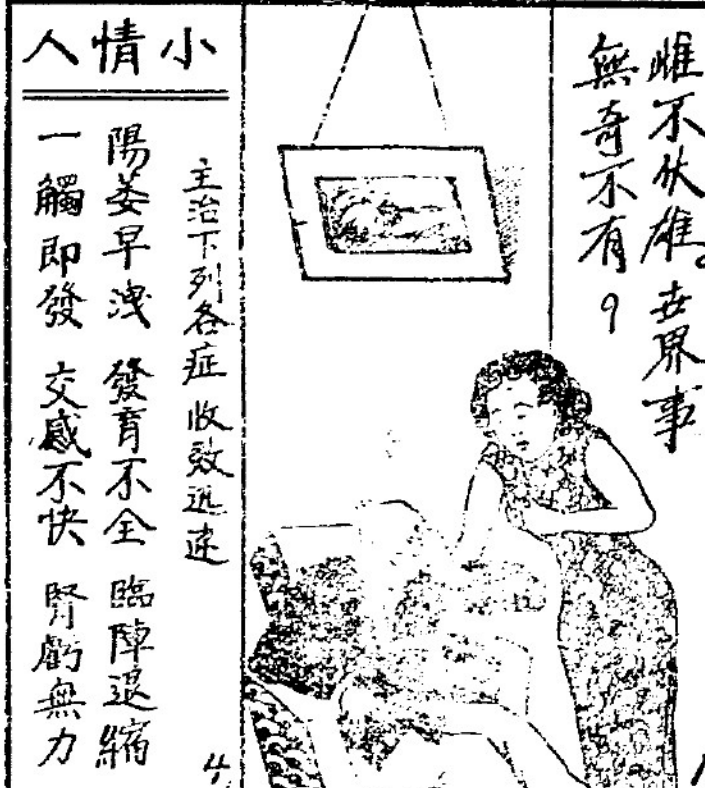 雌不伏雄。世界事
無奇不有?
小情人
主治下列各症 收效迅速
陽萎早洩 發育不全 臨陣退縮
一觸即發 交感不快 腎虧無力
4.